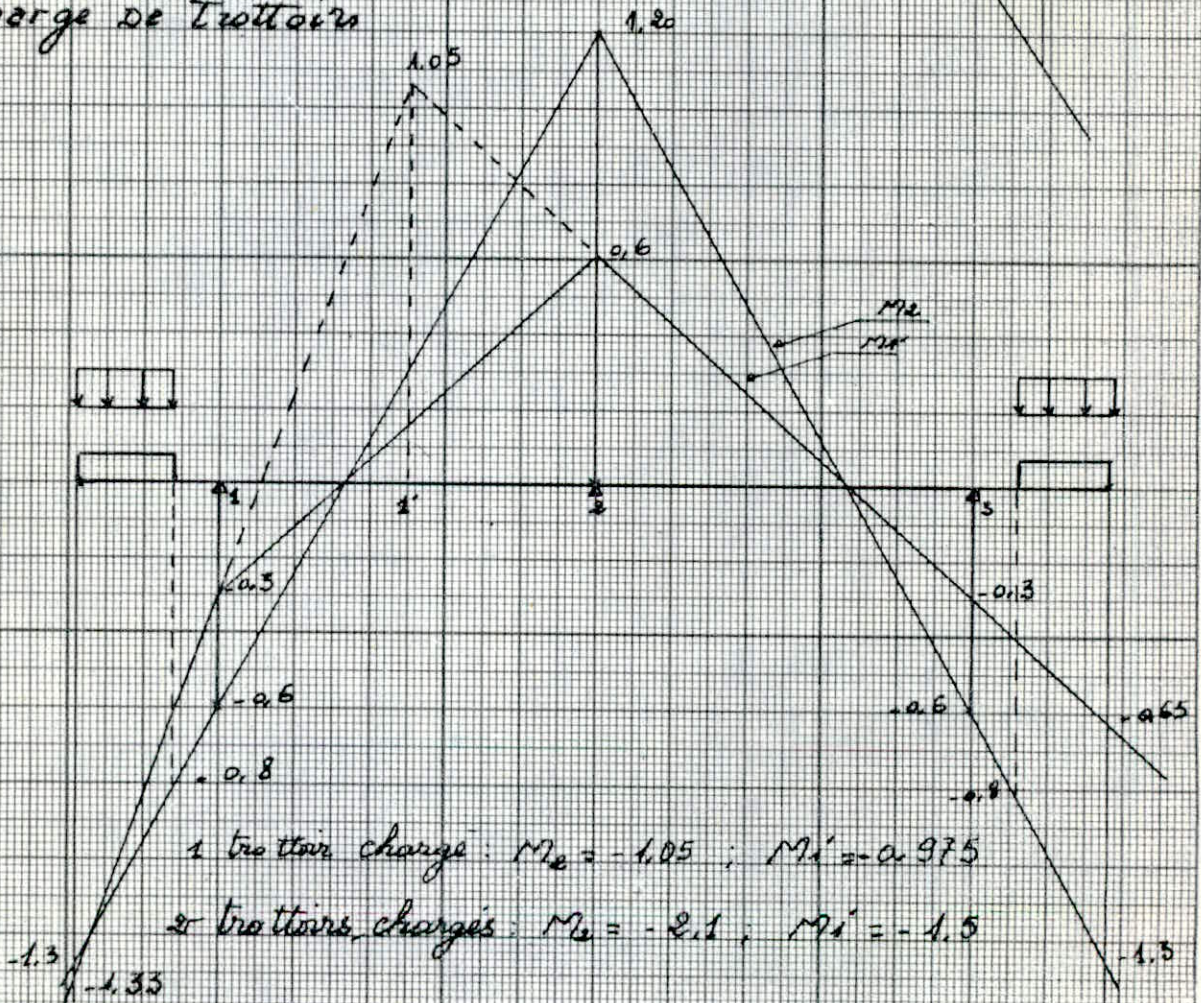 arge De Trottoirs
1,20
1.05
0,6
M2
M1
1
1'
2
3
0,3
-0,13
-0,6
-0,6
-0,65
-0,8
-0,8
1 trottoir chargé : Me = -1.05 ; Mi = -0,975
2 trottoirs chargés : Me = -2.1 ; Mi = -1.5
-1.3
-1.3
-1.33